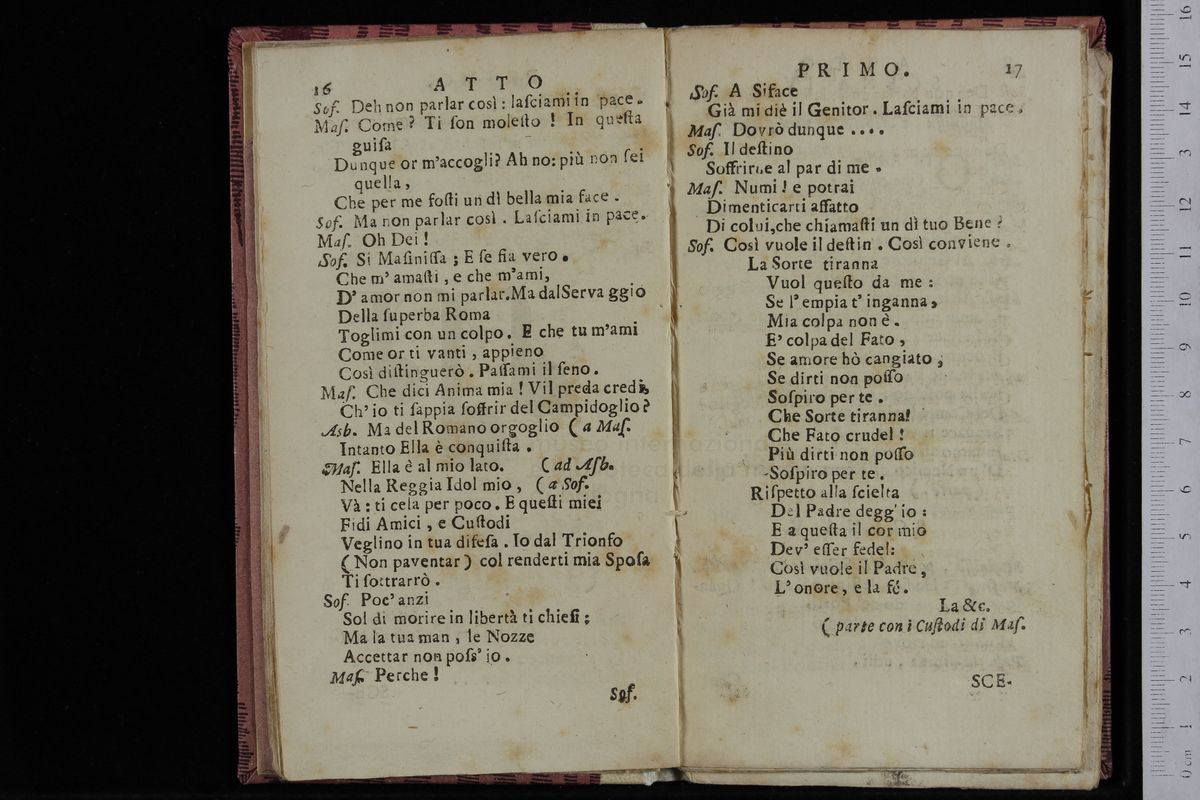 16 ATTO
Sof. Deh non parlar così : laſciami in pace.
Maſ. Come ? Ti ſon moleſto ! In queſta
guiſa
Dunque or m'accogli? Ah no: più non ſei
quella ,
Che per me foſti un dì bella mia face .
Sof. Ma non parlar così . Laſciami in pace.
Maſ. Oh Dei !
Sof. Si Maſiniſſa ; E ſe ſia vero .
Che m' amaſti , e che m'ami,
D' amor non mi parlar.Ma dalServa ggio
Della ſuperba Roma
Toglimi con un colpo. E che tu m'ami
Come or ti vanti , appieno
Così diſtinguerò . Paſſami il ſeno.
Maſ. Che dici Anima mia ! Vil preda credi,
Ch' io ti ſappia ſoffrir del Campidoglio?
Asb. Ma del Romano orgoglio ( a Maſ.
Intanto Ella è conquiſta .
Maſ. Ella è al mio lato. ( ad Aſb.
Nella Reggia Idol mio , ( a Sof.
Và : ti cela per poco. E queſti miei
Fidi Amici , e Cuſtodi
Veglino in tua difeſa . Io dal Trionfo
( Non paventar ) col renderti mia Spoſa
Ti ſottrarrò .
Sof. Poc' anzi
Sol di morire in libertà ti chieſi ;
Ma la tua man , le Nozze
Accettar non poſs' io .
Maſ. Perche !
Sof.
PRIMO. 17
Sof. A Siface
Già mi diè il Genitor . Laſciami in pace .
Maſ. Dovrò dunque ....
Sof. Il deſtino
Soffrirne al par di me .
Maſ. Numi ! e potrai
Dimenticarti affatto
Di colui,che chiamaſti un dì tuo Bene ?
Sof. Così vuole il deſtin . Così conviene .
La Sorte tiranna
Vuol queſto da me :
Se l' empia t' inganna,
Mia colpa non è .
E' colpa del Fato ,
Se amore hò cangiato ,
Se dirti non poſſo
Soſpiro per te .
Che Sorte tiranna!
Che Fato crudel !
Più dirti non poſſo
Soſpiro per te .
Riſpetto alla ſcielta
Del Padre degg' io :
E a queſta il cor mio
Dev' eſſer fedel:
Così vuole il Padre ,
L' onore , e la fé .
La &c.
( parte con i Cuſtodi di Maſ.
SCE-
16
15
14
13
12
11
10
9
8
7
6
5
4
3
2
1
0 cm